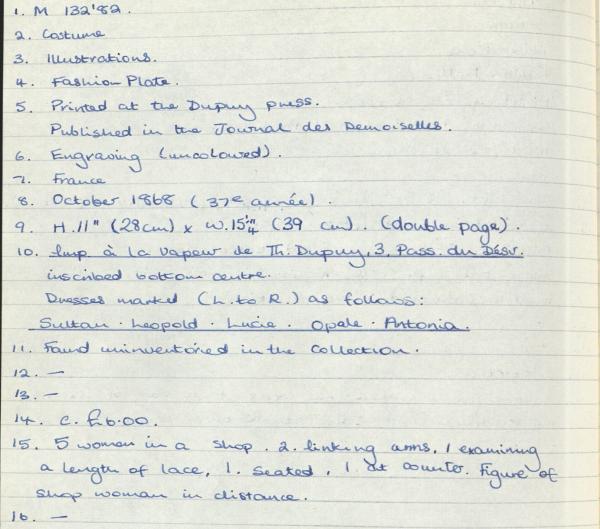 1. M 132'82.
2. Costume
3. Illustrations.
4. Fashion Plate.
5. Printed at the Dupuy press.
Published in the Journal des Demoiselles.
6. Engraving (uncoloured).
7. France
8. October 1868 (37e année).
9. H.11" (28cm) x W.15¼" (39 cm). (double page).
10. Imp. à la vapeur de Th. Dupuy, 3, Pass. du Désir.
inscribed bottom centre.
Dresses marked (L. to R.) as follows:
Sultan · Leopold · Lucie · Opale · Antonia.
11. Found uninventoried in the Collection.
12. —
13. —
14. c. £6.00.
15. 5 women in a shop. 2. linking arms, 1 examining
a length of lace, 1. seated, 1 at counter. Figure of
shop woman in distance.
16. —